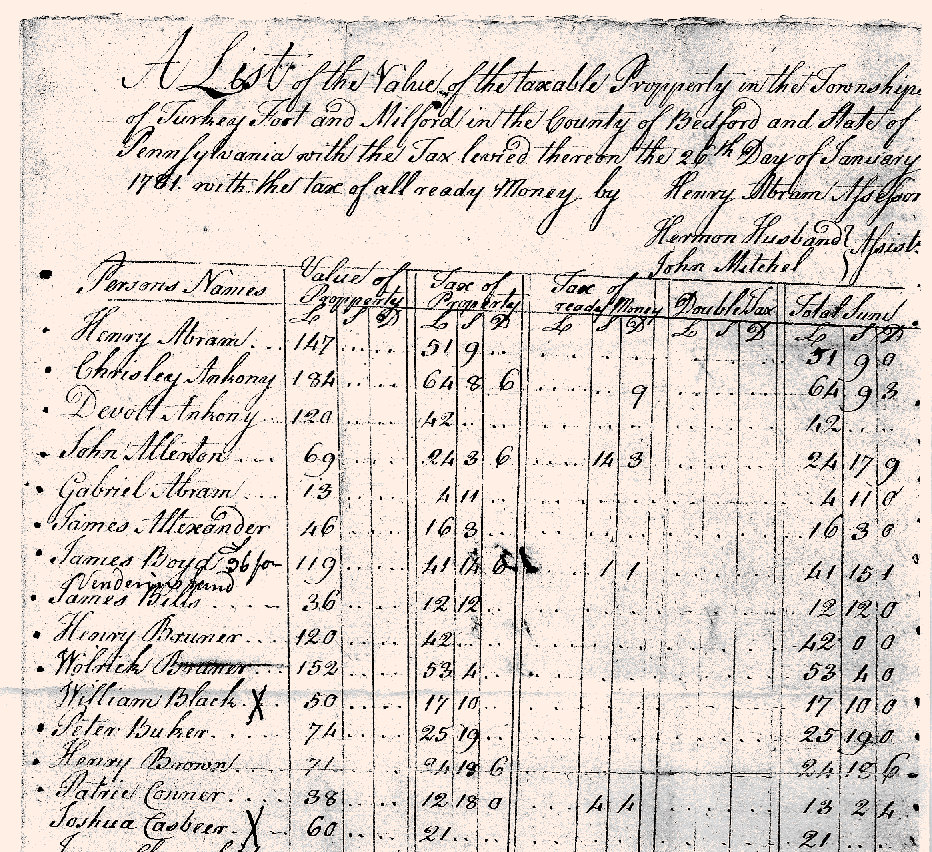 A List of the Value of the taxable Propperty in the Township
of Turkey Foot and Milford in the County of Bedford and State of
Pennsylvania with the Tax levied thereon the 26th Day of January
1781. with the tax of all ready Money by Henry Abram Assessor
Hermon Husband } Assist.
John Mitchel
Persons Names Value of Propperty Tax of Property Tax of ready Money Double Tax Total Sum
L S D L S D L S D L S D L S D
Henry Abram 147 51 9 51 9 0
Chrisley Ankony 184 64 8 6 9 64 9 3
Devolt Ankony 120 42 42
John Allerton 69 24 3 6 14 3 24 17 9
Gabriel Abram 13 4 11 4 11 0
James Allexander 46 16 3 16 3 0
James Boyd 36 for 119 41 14 1 1 41 15 1
James Bills 36 12 12 12 12 0
Henry Bruner 120 42 42 0 0
Wolrick Bruner 152 53 4 53 4 0
William Black X 50 17 10 17 10 0
Peter Buker 74 25 19 25 19 0
Henry Brown 71 24 18 6 24 18 6
Patric Conner 38 12 18 0 4 4 13 2 4
Joshua Casbeer X 60 21 21